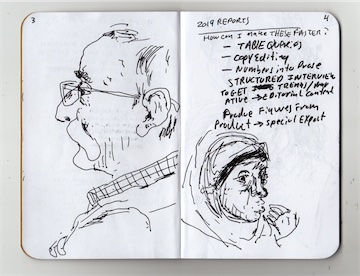 3
4
2019 REPORTS
How can I make THESE FASTER?
— TABLE Queries
— Copy Editing
— Numbers into Prose
STRUCTURED INTERVIEW
TO GET TRENDS/
ATIVE → EDITORIAL Control
Produce Figures From
Product → special Export